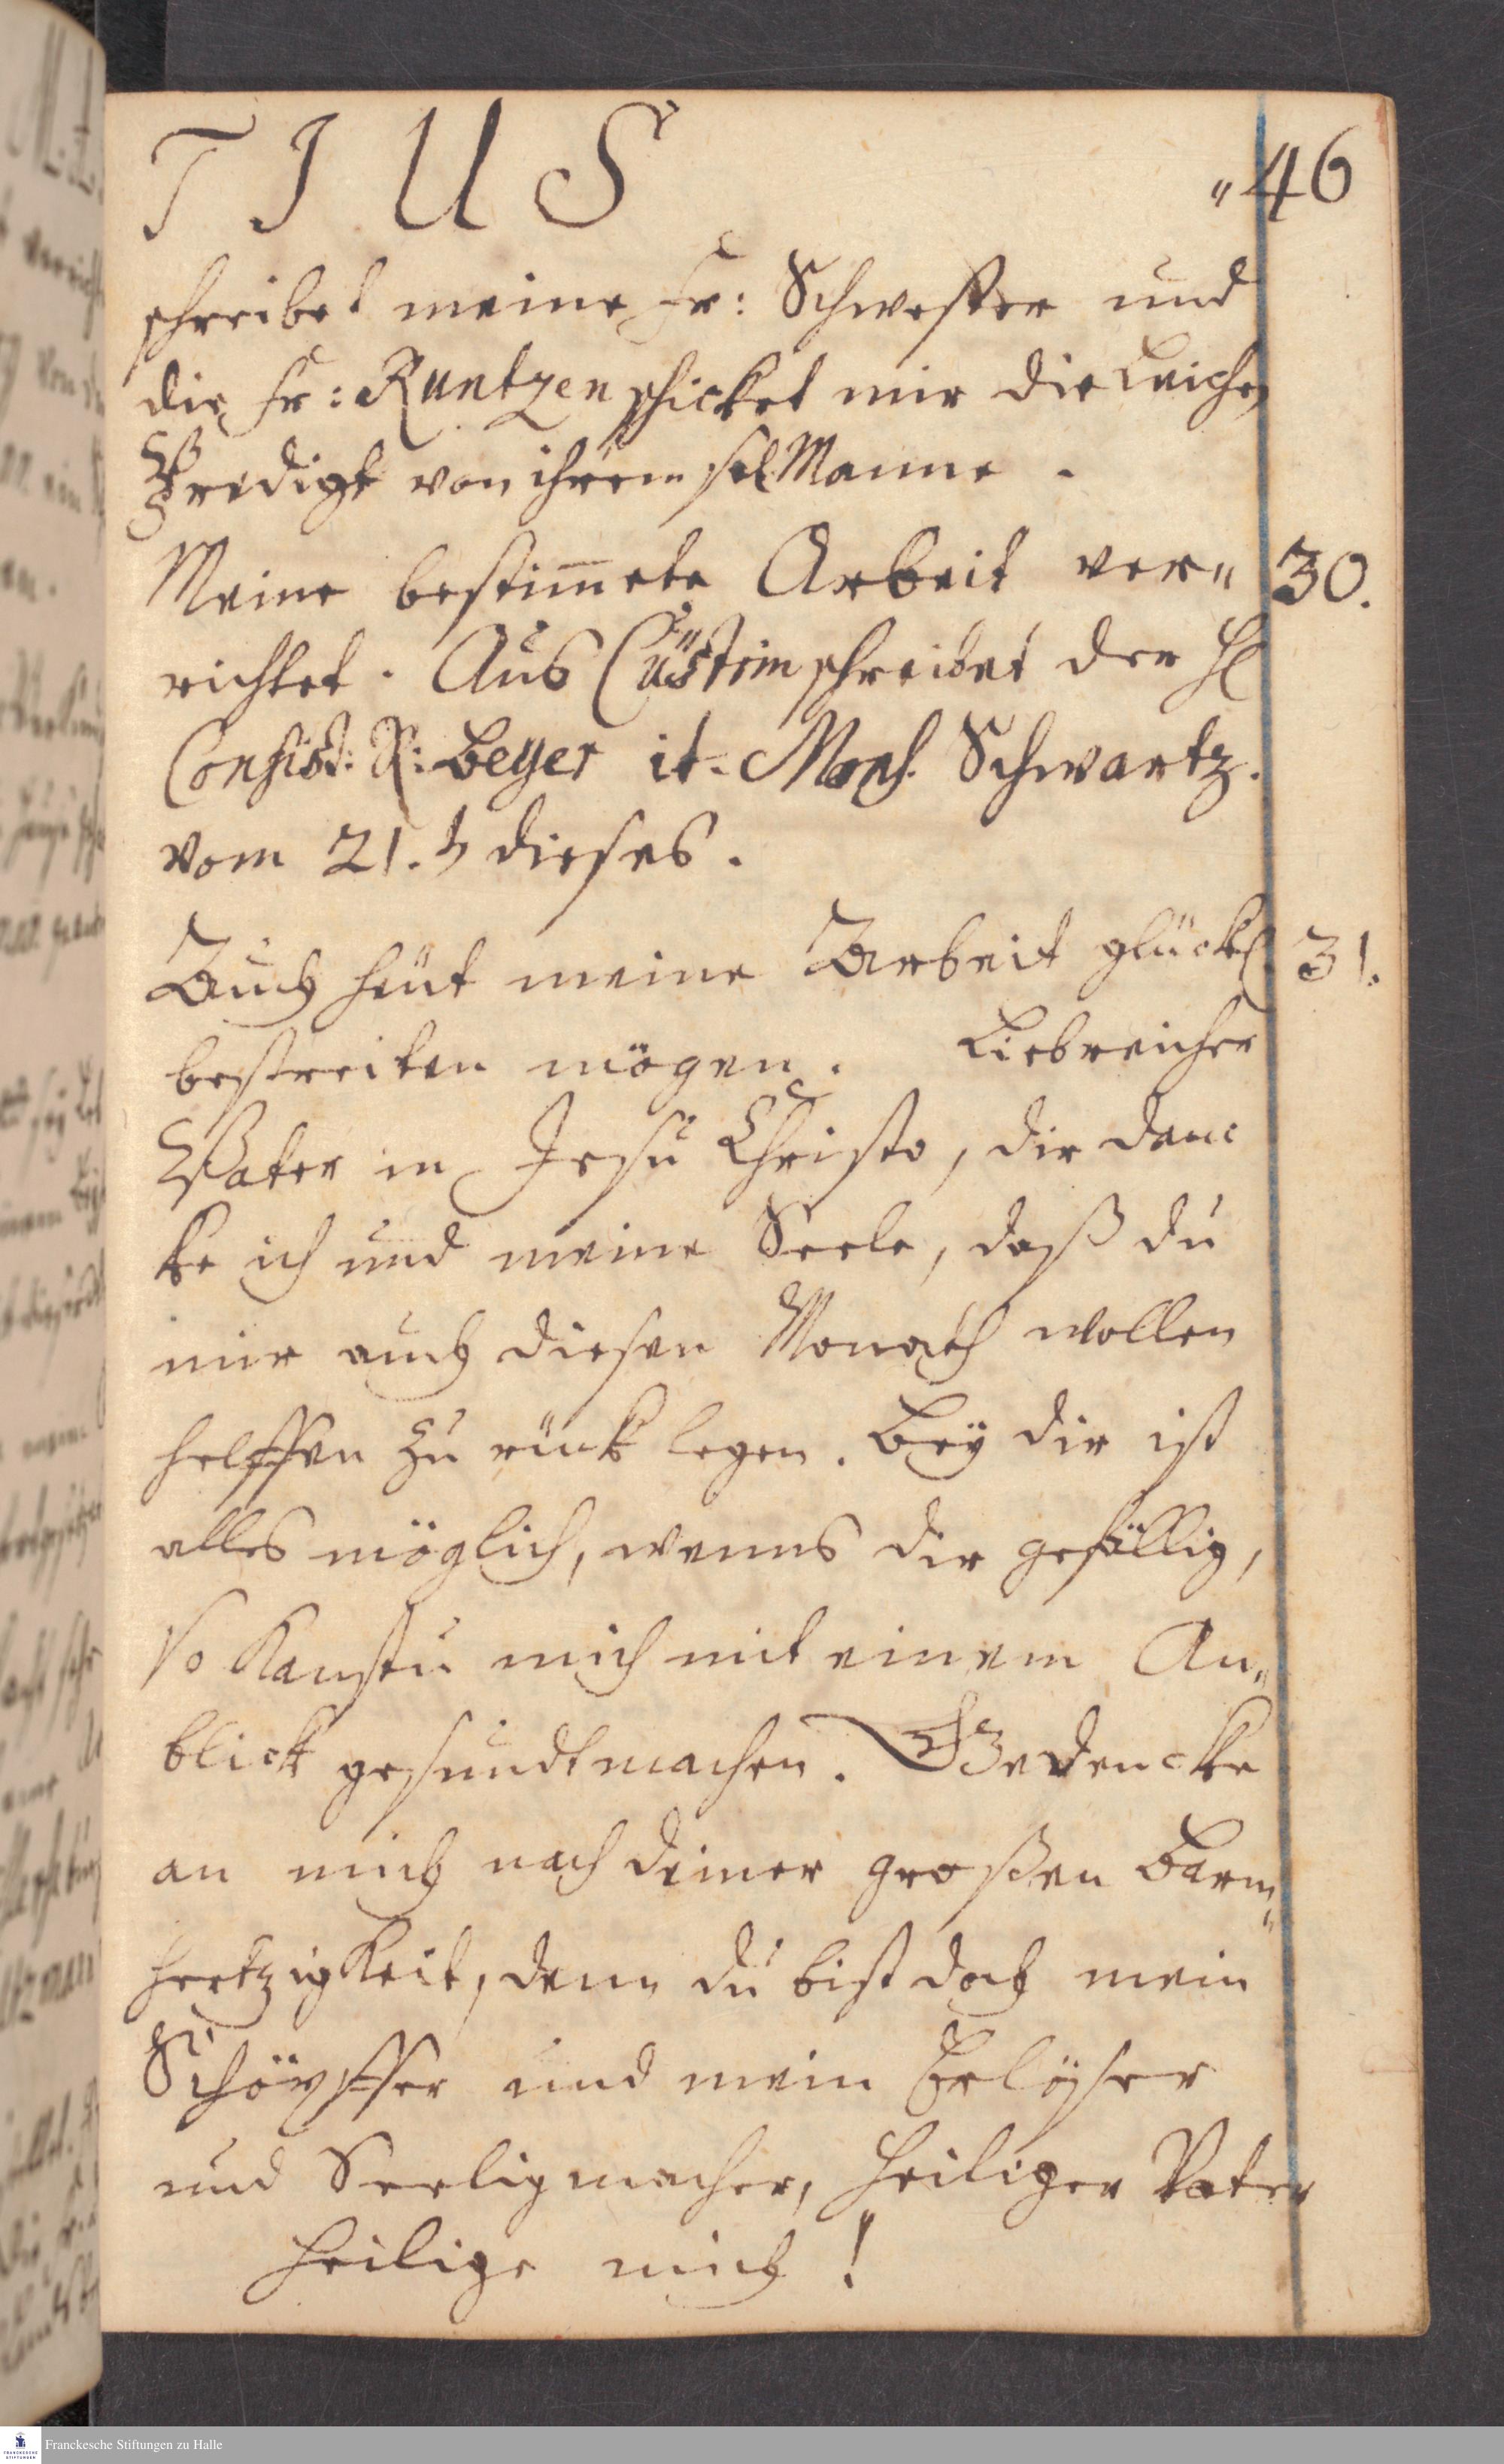 T I U S
" 46
schreibet meine Fr: Schwester und
die Fr: Runtzen schicket mir die Leich
Predigt von ihrem sel. Manne.
Meine bestim̅ete Arbeit ver"
30.
richtet. Aus Cüstrin schreibet der H
Consist: R: Beyer it. Mons. Schwartz.
vom 21. h dieses.
Auch heut meine Arbeit glückl.
31.
bestreiten mögen. Liebreicher
Vater in Jesu Christo, dir danc
ke ich und meine Seele, daß du
mir auch diesen Monath wollen
helffen zu rück legen. Bey dir ist
alles möglich, wenns dir gefällig,
so kanstu mich mit einem An"
blick gesundt machen. Gedencke
an mich nach deiner großen Barm"
hertzigkeit, denn du bist doch mein
Schöpffer und mein Erlöser
und Seeligmacher, heiliger Vater
heilige mich!
FRANCKESCHE STIFTUNGEN
Franckesche Stiftungen zu Halle